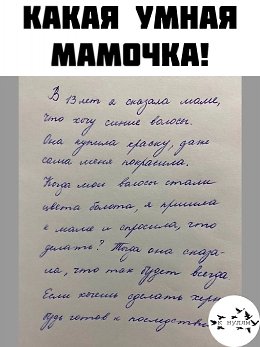 КАКАЯ УМНАЯ
МАМОЧКА!
В 13 лет я сказала маме,
что хочу синие волосы.
Она купила краску, даже
сама меня покрасила.
Когда мои волосы стали
цвета болота, я пришла
к маме и спросила, что
делать? Тогда она сказа-
ла, что так будет всегда
Если хочешь сделать
будь готов к
К НУЛЯМ